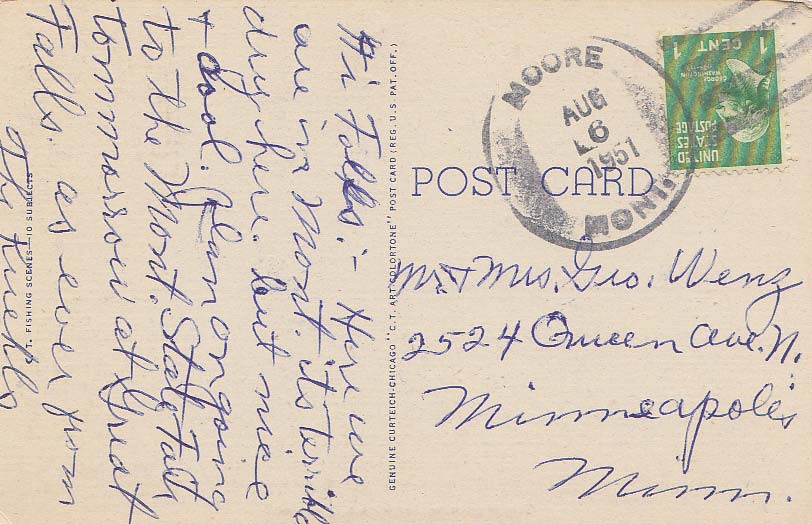 Hi Folks:- Here we
are in Mont. its terrible
dry here. but nice
+ cool. Plan on going
to the Mont. State Fair
tommorrow at Great
Falls. as ever from
The
T. FISHING SCENES—10 SUBJECTS
GENUINE CURTEICH-CHICAGO "C.T. ART-COLORTONE" POST CARD (REG. U.S. PAT. OFF.)
POST CARD
MOORE
AUG
6
1951
MONT.
1 CENT 1
GEORGE
WASHINGTON
UNITED
STATES
POSTAGE
Mr + Mrs. Geo. Wenz
2524 Queen Ave. N.
Minneapolis
Minn.